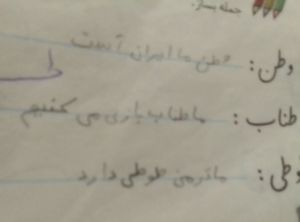 جمله بساز.
وطن: وطن ما ایران است
طناب: ما طناب بازی می کنیم
طی: مادر من طوطی دارد